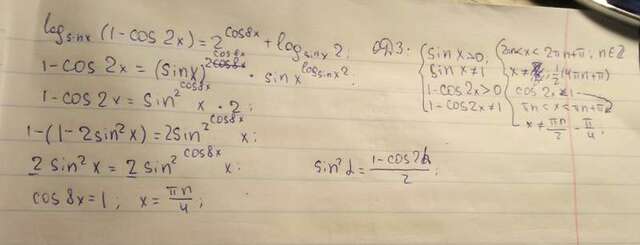 log_{sinx}(1-cos2x)=2^{cos8x}+log_{sinx}2; ОДЗ:
1-cos2x=(sinx)^{2^{cos8x}}·sinx^{log_{sinx}2};
1-cos2x=sin^{2^{cos8x}}x·2;
1-(1-2sin²x)=2sin^{2^{cos8x}}x;
2sin²x=2sin^{2^{cos8x}}x;
cos8x=1; x=πn/4;
sinx>0;
sinx≠1
1-cos2x>0
1-cos2x≠1
2πn<x<2πn+π; n∈Z
πn<x<πn+π
sin²α=(1-cos2α)/2;